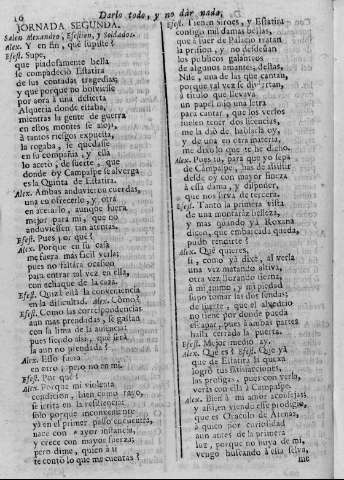 16 Darlo todo, y no dár nada,
JORNADA SEGUNDA.
Salen Alexandro, Efestion, y Soldados.
Alex. Y en fin, què supiste?
Efest. Supe,
que piadosamente bella
se compadeciò Estatira
de las contadas tragedias
y que porque no bolviesse
por aora à una desierta
Alqueria donde estaba,
mientras la gente de guerra
en estos montes se aloja,
à tantos riesgos expuesta,
la rogaba, se quedasse
en su compañia, y ella
lo acetò; de suerte, que
donde oy Campaspe se alverga
es la Quinta de Estatira.
Alex. Ambas anduvieron cuerdas,
una en ofrecerlo, y otra
en acetarlo, aunque fuera
mejor para mi, que no
anduviessen tan atentas.
Efest. Pues por què?
Alex. Porque en su casa
me fuera mas facil verla;
pues no faltàra ocasion
para entrar tal vez en ella,
con achaque de la caza.
Efest. Quizà està la conveniencia
en la dificultad. Alex. Còmo?
Efest. Como las correspondencias
aun mas prendadas, se gastan
con la lima de la ausencia:
pues siendo assi, què serà
la aun no prendada?
Alex. Esso fuera
en otro; pero no en mi.
Efest. Por què?
Alex. Porque mi violenta
condicion, bien como rayo,
se irrita en la resistencia;
solo porque inconveniente
yà en el primer passo encuentra,
nace con mayor instancia,
y crece con mayor fuerza;
pero dime, quien à ti
te contò lo que me cuentas?
Efest. Tienen Siroes, y Estatira
consigo mil damas bellas,
que à fuer de Palacio tratan
la prision, y no desdeñan
los publicos galanteos
de algunos amantes, dellas,
Nise, una de las que cantan,
porque tal vez se divierten,
à titulo que llevava
un papel, hijo una letra
para cantar, que los versos
suelen tener dos licencias,
me la diò de hablarla oy,
y de una en otra materia,
me dixo lo que te he dicho.
Alex. Pues tu, para que yo sepa
de Campaspe, has de assistir
desde oy con mayor fineza
à essa dama, y disponer,
que nos sirva de tercera.
Efest. Tanto la primera vista
de una montaràz belleza,
y mas quando yà Roxana
dicen, que embarcada queda,
pudo rendirte?
Alex. Què quieres,
si, como yà dixe, al verla
una vez matando altiva,
otra vez llorando tierna,
à mi animo, y mi piedad
supo tomar las dos sendas
de suerte, que el alvedrio
no tiene por donde pueda
escapar, pues à ambas partes
halla cerrada la puerta.
Efest. Mejor medio ay.
Alex. Què es? Efest. Que yà
que de Estatira la queixa
logrò tus satisfacciones,
las prosigas, pues con verla,
veràs con ella à Campaspe.
Alex. Bien à mi amor aconsejas,
y assi, en viendo esse prodigio,
que es Oraculo de Atenas,
à quien por curiosidad
aun antes de la primera
luz, porque no huya de mi,
vengo buscando à esta selva,
me